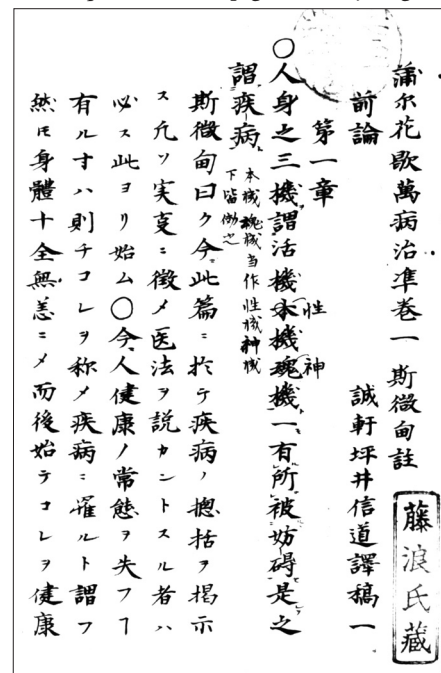 蒲尔花歇萬病治準巻一 斯微甸註
藤浪氏藏
前論 誠軒坪井信道譯稿一
第一章
性 神
〇人身之三機謂活機本機魂機一有所被妨碍是之
謂疾病
本機魂機当作性機神機
下皆倣之
斯微甸曰ク今此篇ニ於テ疾病ノ摠括ヲ掲示
ス凡ソ実叓ニ徴メ医法ヲ説カントスル者ハ
必ス此ヨリ始ム〇今人健康ノ常態ヲ失フヿ
有ル寸ハ則チコレヲ称メ疾病ニ罹ルト謂フ
然𪜈身體十全無恙ニメ而後始テコレヲ健康